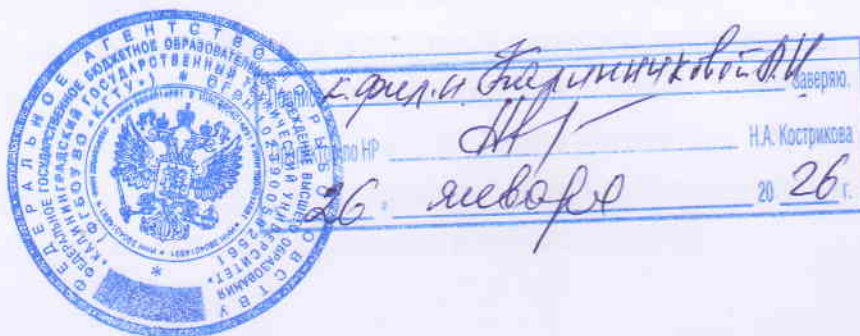 ФЕДЕРАЛЬНОЕ АГЕНТСТВО ПО РЫБОЛОВСТВУ
ФЕДЕРАЛЬНОЕ ГОСУДАРСТВЕННОЕ БЮДЖЕТНОЕ ОБРАЗОВАТЕЛЬНОЕ УЧРЕЖДЕНИЕ ВЫСШЕГО ОБРАЗОВАНИЯ
"КАЛИНИНГРАДСКИЙ ГОСУДАРСТВЕННЫЙ ТЕХНИЧЕСКИЙ УНИВЕРСИТЕТ"
(ФГБОУ ВО "КГТУ") * ОГРН
к.фил.н. Калинниковой заверяю.
по НР Н.А. Кострикова
26 " января 20 26 г.